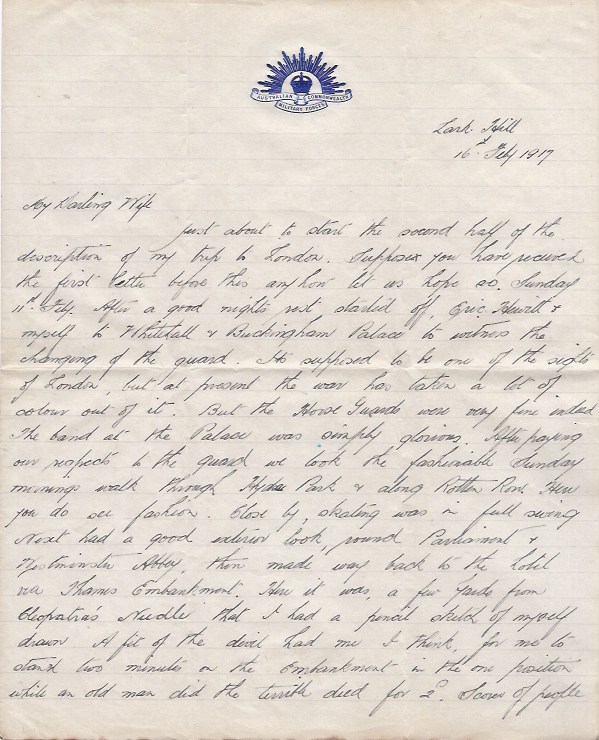 AUSTRALIAN COMMONWEALTH
MILITARY FORCES
Lark Hill
16th Feby 1917
My Darling Wife
Just about to start the second half of the
description of my trip to London. Suppose you have received
the first letter before this anyhow let us hope so. Sunday
11th Feby. After a good nights rest started off, Eric Hewitt &
myself to Whitehall & Buckingham Palace to witness the
changing of the guard. Its supposed to be one of the sights
of London, but at present the war has taken a lot of
colour out of it. But the Horse Guards were very fine indeed
The band at the Palace was simply glorious. After paying
our respects to the guard we took the fashionable Sunday
mornings walk through Hyde Park & along Rotten Row. Here
you do see fashion. Close by, skating was in full swing
Next had a good interior look, round Parliament &
Westminster Abbey, then made way back to the hotel
via Thames Embankment. Here it was, a few yards from
Cleopatra's Needle that I had a pencil sketch of myself
drawn A fit of the devil had me I think, for me to
stand two minutes on the Embankment in the one position
while an old man did the terrible died for 2d. Scores of people